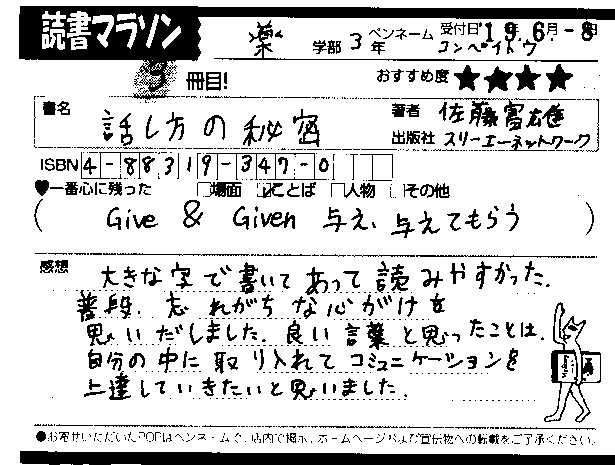 読書マラソン
薬 学部 3 年 ペンネーム コンペイトウ 受付日 '19. 6月 -8日
冊目! おすすめ度 ★★★★
書名 話し方の秘密 著者 佐藤富雄
出版社 スリーエーネットワーク
ISBN 4-88319-347-0
♥一番心に残った □場面 ☑ことば □人物 □その他
( Give & Given 与え、与えてもらう )
感想 大きな字で書いてあって読みやすかった。
普段、忘れがちな心がけを
思いだしました。良い言葉と思ったことは、
自分の中に取り入れてコミュニケーションを
上達していきたいと思いました。
●お寄せいただいたPOPはペンネームで、店内で掲示、ホームページおよび宣伝物への転載をご了承ください。